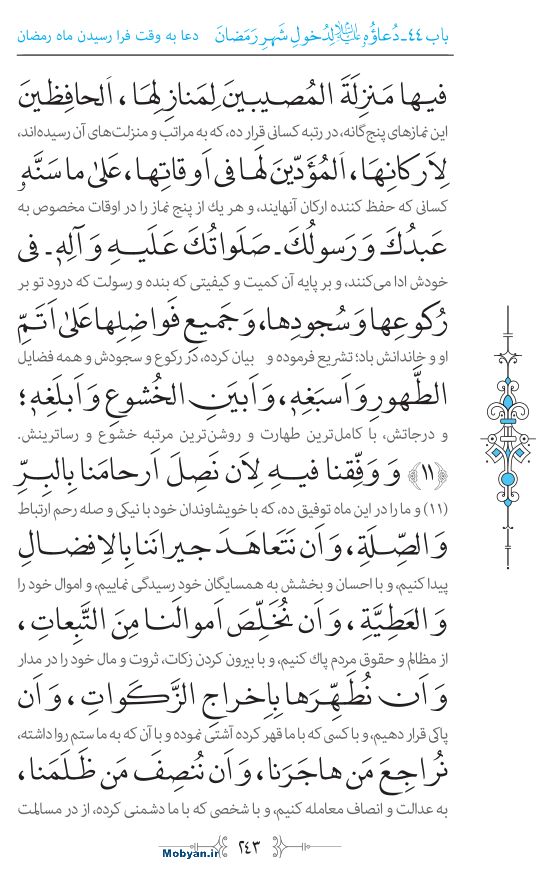 باب ۴۴ـ دُعاؤُهُ علیه‌السلام لِدُخولِ شَهرِ رَمَضانَ دعا به وقت فرا رسیدن ماه رمضان
فیـها مَنزِلَةَ المُصیبینَ لِمَنازِلِها، اَلحافِظینَ
این نمازهای پنج‌گانه، در رتبه کسانی قرار ده، که به مراتب و منزلت‌های آن رسیده‌اند،
لِاَرکانِهَا، اَلمُؤَدّینَ لَها فی اَوقاتِها، عَلیٰ ما سَنَّهُ
کسانی که حفظ کننده ارکان آنهایند، و هر یك از پنج نماز را در اوقات مخصوص به
عَبدُكَ وَ رَسولُكَ ـ صَلَواتُكَ عَلَیـهِ وَ آلِهٖ ـ فی
خودش ادا می‌کنند، و بر پایه آن کمیت و کیفیتی که بنده و رسولت که درود تو بر
رُکوعِها وَ سُجودِها، وَ جَمیعِ فَواضِلِها عَلیٰ اَتَمِّ
او و خاندانش باد؛ تشریع فرموده و بیان کرده، در رکوع و سجودش و همه فضایل
الطَّهورِ وَ اَسبَغِهٖ، وَ اَبیَنِ الخُشوعِ وَ اَبلَغِهٖ؛
و درجاتش، با کامل‌ترین طهارت و روشن‌ترین مرتبه خشوع و رساترینش.
﴿۱۱﴾ وَ وَفِّقنا فیـهِ لِاَن نَصِلَ اَرحامَنا بِالبِرِّ
(۱۱) و ما را در این ماه توفیق ده، که با خویشاوندان خود با نیکی و صله رحم ارتباط
وَ الصِّلَةِ، وَ اَن نَتَعاهَدَ جیرانَنا بِالاِفضالِ
پیدا کنیم، و با احسان و بخشش به همسایگان خود رسیدگی نماییم، و اموال خود را
وَ العَطِیَّةِ، وَ اَن نُخَلِّصَ اَموالَنا مِنَ التَّبِعاتِ،
از مظالم و حقوق مردم پاك کنیم، و با بیرون کردن زکات، ثروت و مال خود را در مدار
وَ اَن نُطَهِّرَها بِاِخراجِ الزَّکَواتِ، وَ اَن
پاکی قرار دهیم، و با کسی که با ما قهر کرده آشتی نموده و با آن که به ما ستم روا داشته،
نُراجِعَ مَن هاجَرَنا، وَ اَن نُنصِفَ مَن ظَلَمَنا،
به عدالت و انصاف معامله کنیم، و با شخصی که با ما دشمنی کرده، از در مسالمت
۲۴۳
Mobyan.ir